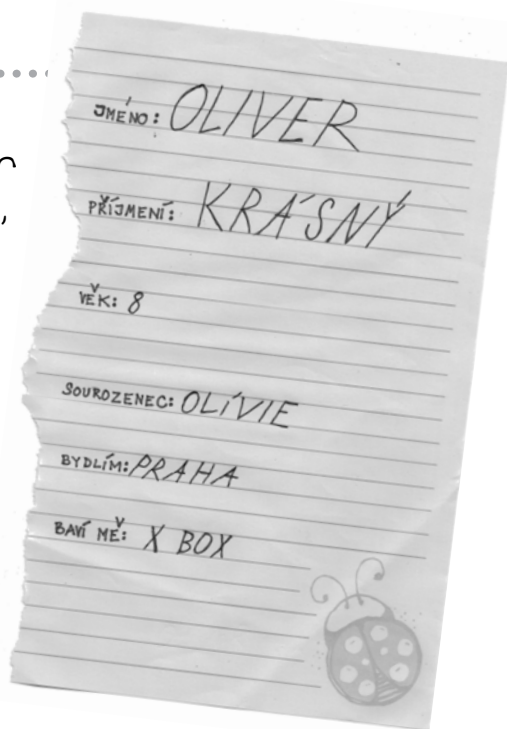 JMÉNO: OLIVER
PŘÍJMENÍ: KRÁSNÝ
VĚK: 8
SOUROZENEC: OLÍVIE
BYDLÍM: PRAHA
BAVÍ MĚ: X BOX